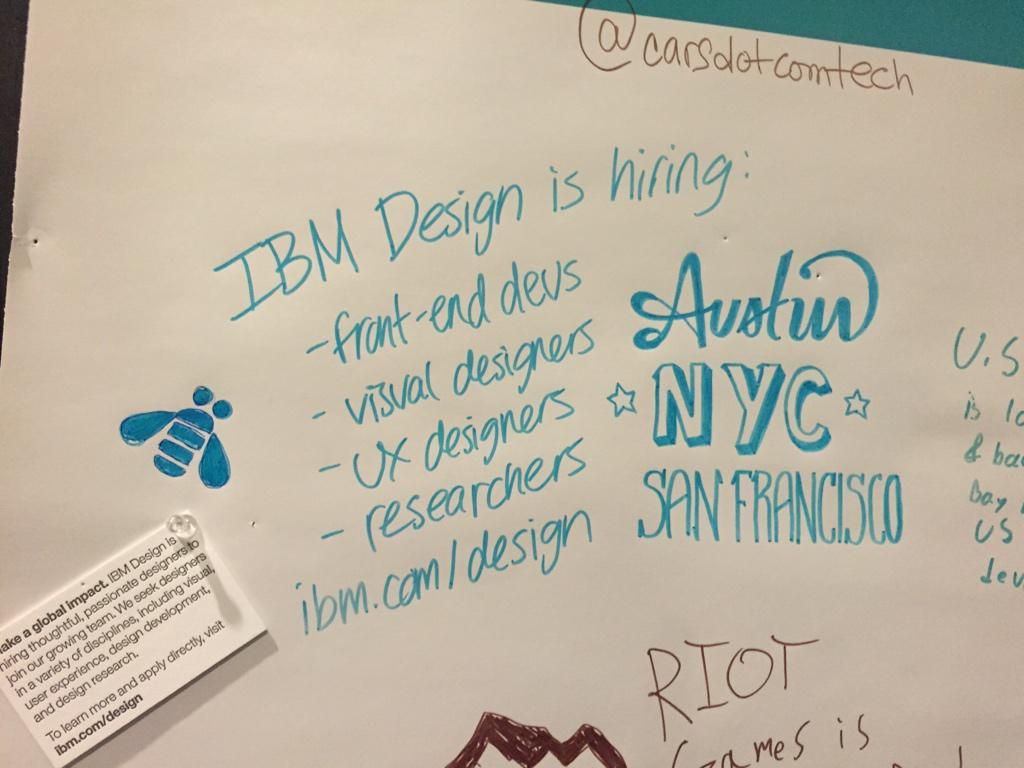 @carsdotcomtech
IBM Design is hiring:
- front-end devs
- visual designers
- UX designers
- researchers
ibm.com/design
Austin
NYC
SAN FRANCISCO
U.S
is
&
Bay
US
RIOT
Games is
ake a global impact. IBM Design is
hiring thoughtful, passionate designers to
join our growing team. We seek designers
in a variety of disciplines, including visual,
user experience, design development,
and design research.
To learn more and apply directly, visit
ibm.com/design